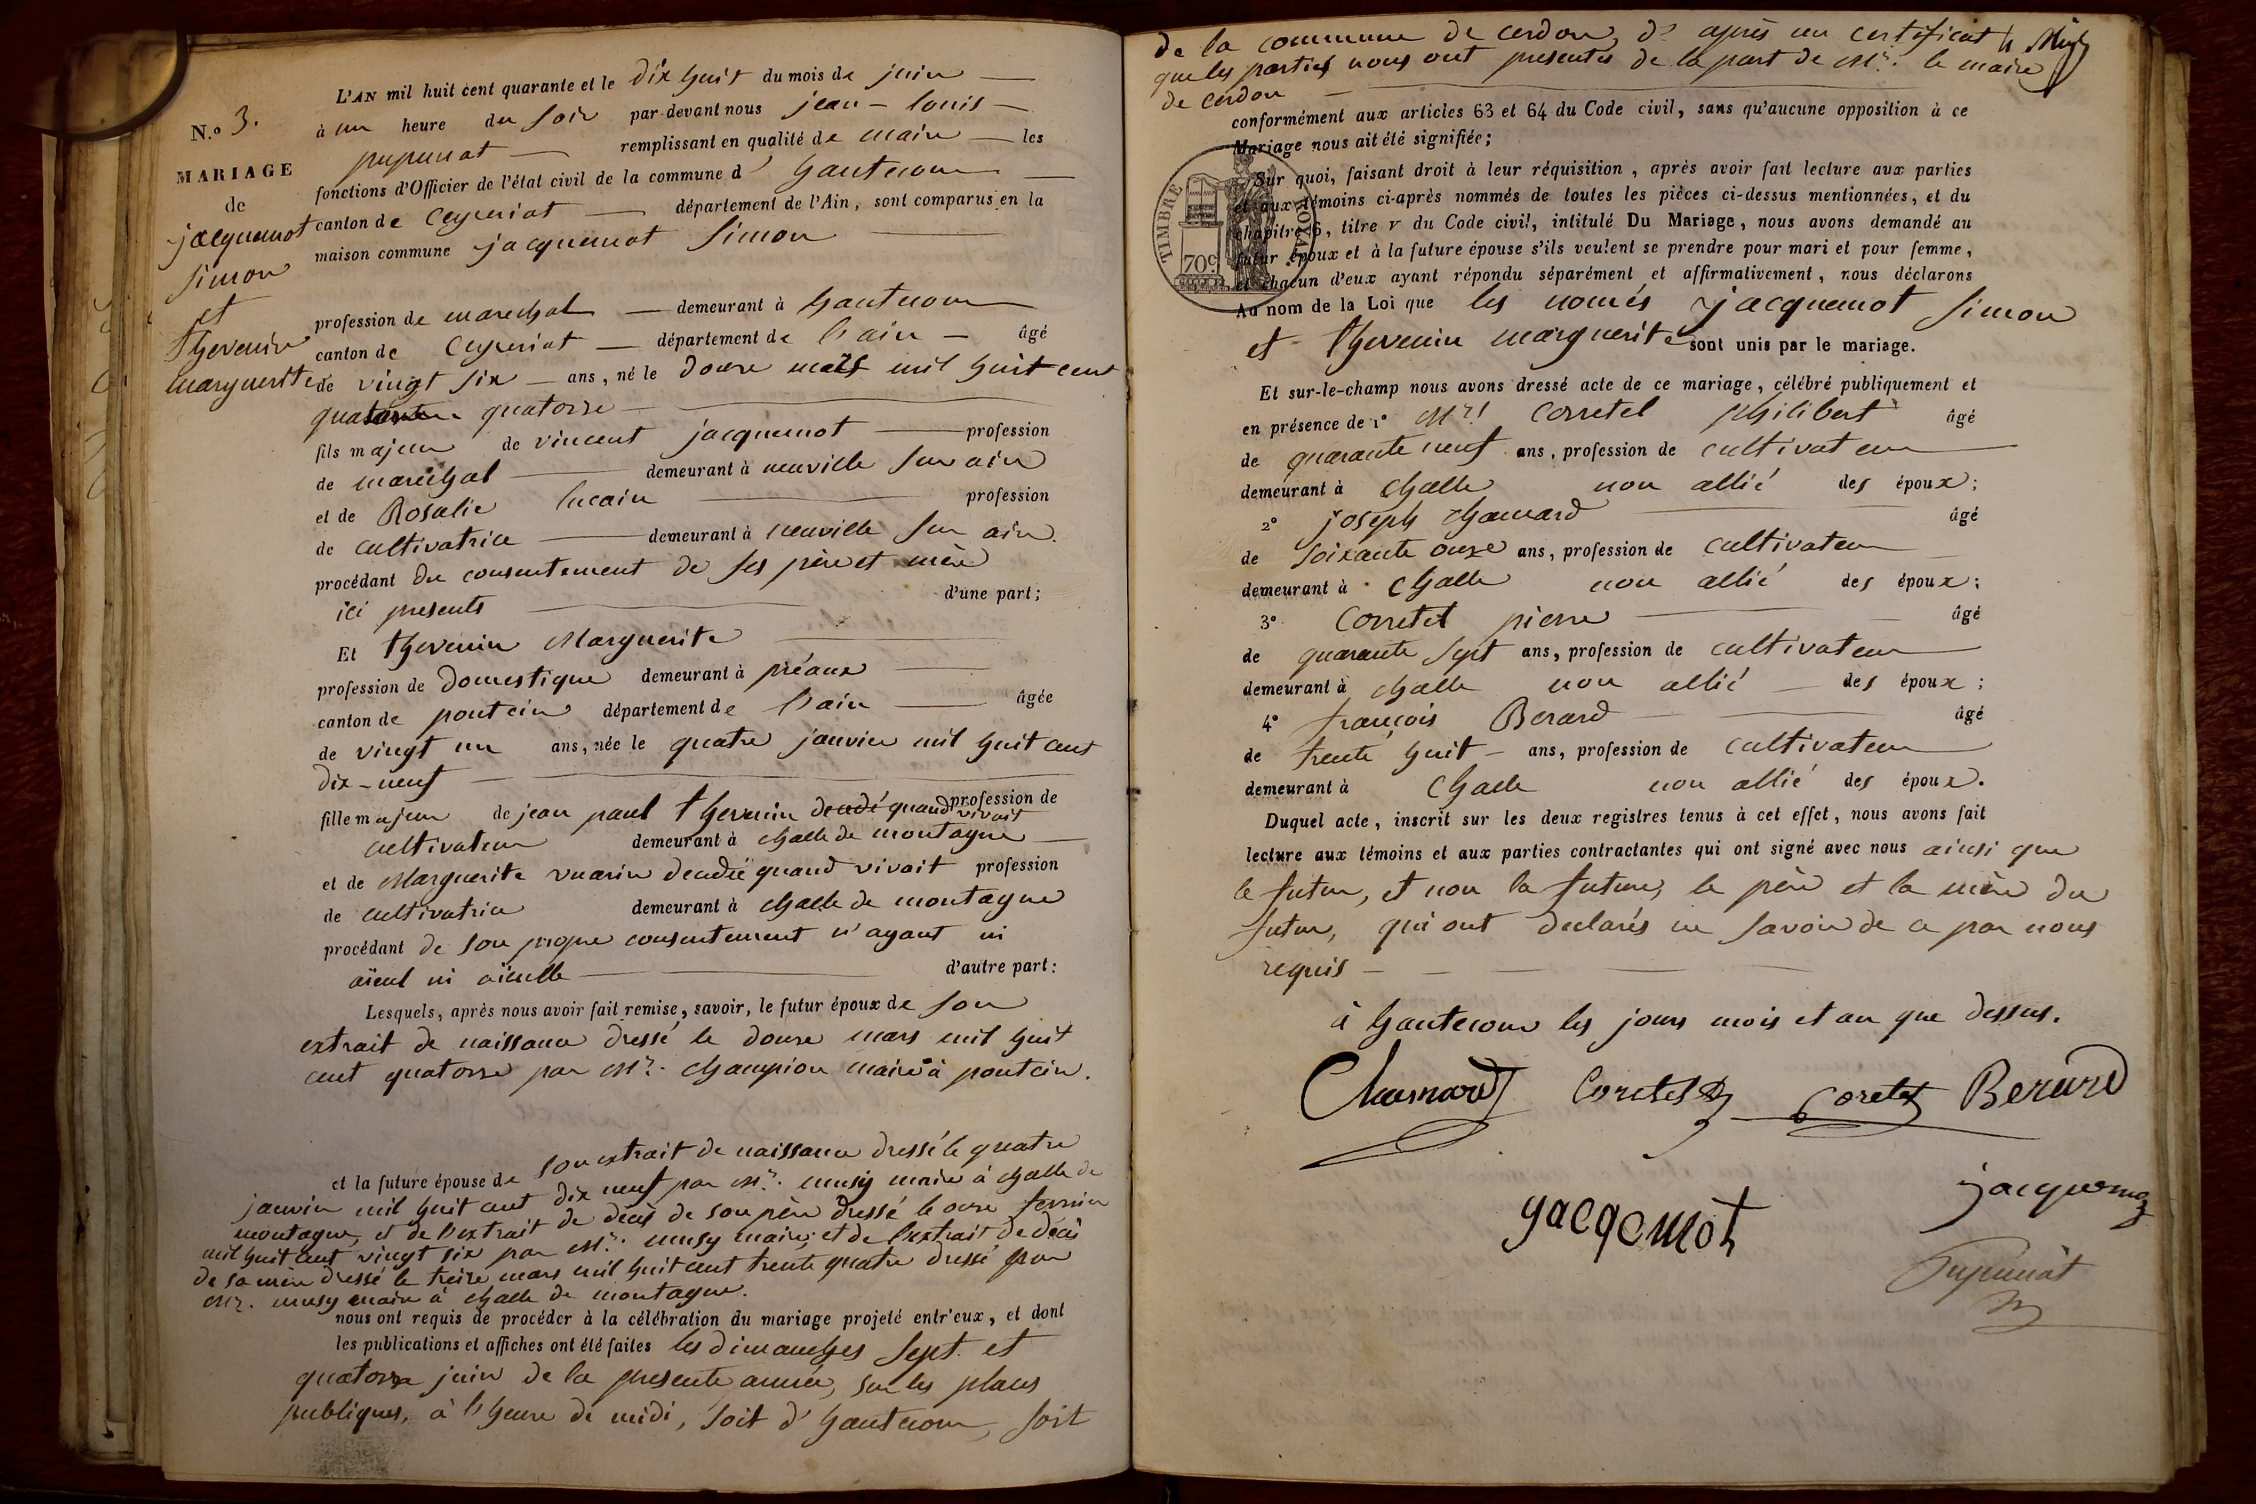 L'AN mil huit cent quarante et le dix huit du mois de juin
N.º 3.
à un heure du soir par-devant nous jean-louis
pupunat remplissant en qualité de maire les
MARIAGE
fonctions d'Officier de l'état civil de la commune d' hautecour
de
canton de Ceyzeriat département de l'Ain, sont comparus en la
jacquemot
maison commune jacquemot Simon
Simon
et
profession de marechal demeurant à hautecour
thevenin
canton de Ceyzeriat département de l'ain âgé
marguerite
de vingt six ans, né le douze mars mil huit cent
quatorze
fils majeur de vincent jacquemot profession
de marechal demeurant à neuville sur ain
et de Rosalie lucain profession
de cultivatrice demeurant à neuville sur ain.
procédant du consentement de ses père et mère
ici presents d'une part;
Et thevenin Marguerite
profession de domestique demeurant à préaux
canton de pontcin département de l'ain âgée
de vingt un ans, née le quatre janvier mil huit cent
dix-neuf
fille majeur de jean paul thevenin decedé quand vivait profession de
cultivateur demeurant à challe de montagne
et de Marguerite vuarin decedée quand vivait profession
de cultivatrice demeurant à challe de montagne
procédant de son propre consentement n'ayant ni
aïeul ni aïeulle d'autre part:
Lesquels, après nous avoir fait remise, savoir, le futur époux de son
extrait de naissance dressé le douze mars mil huit
cent quatorze par Mr. champion maire à pontcin.
et la future épouse de son extrait de naissance dressé le quatre
janvier mil huit cent dix neuf par Mr. musy maire à challe de
montagne, et de l'extrait de decès de son père dressé le onze fevrier
mil huit cent vingt six par Mr. musy maire; et de l'extrait de decès
de sa mère dressé le treize mars mil huit cent trente quatre dressé par
Mr. musy maire à challe de montagne.
nous ont requis de procéder à la célébration du mariage projeté entr'eux, et dont
les publications et affiches ont été faites les dimanches sept et
quatorze juin de la presente année, sur les places
publiques, à l'heure de midi, soit d'hautecour, soit
de la commune de cerdon, d'après un certificat
que les parties nous ont presentés de la part de Mr. le maire
de cerdon
conformément aux articles 63 et 64 du Code civil, sans qu'aucune opposition à ce
Mariage nous ait été signifiée;
Sur quoi, faisant droit à leur réquisition, après avoir fait lecture aux parties
et aux témoins ci-après nommés de toutes les pièces ci-dessus mentionnées, et du
chapitre 6, titre V du Code civil, intitulé Du Mariage, nous avons demandé au
futur époux et à la future épouse s'ils veulent se prendre pour mari et pour femme,
et chacun d'eux ayant répondu séparément et affirmativement, nous déclarons
TIMBRE ROYAL
70c
Au nom de la Loi que les només jacquemot Simon
et thevenin marguerite sont unis par le mariage.
Et sur-le-champ nous avons dressé acte de ce mariage, célébré publiquement et
en présence de 1º Mr. Corretel philibert âgé
de quarante neuf ans, profession de cultivateur
demeurant à challe non allié des époux;
2º joseph chamard âgé
de soixante onze ans, profession de cultivateur
demeurant à challe non allié des époux;
3º Corretel pierre âgé
de quarante sept ans, profession de cultivateur
demeurant à challe non allié des époux;
4º françois Berard âgé
de trente huit ans, profession de cultivateur
demeurant à challe non allié des époux.
Duquel acte, inscrit sur les deux registres tenus à cet effet, nous avons fait
lecture aux témoins et aux parties contractantes qui ont signé avec nous ainsi que
le futur, et non la future, le père et la mère du
futur, qui ont declarés ne savoir de ce par nous
requis
à hautecour les jours mois et an que dessus.
Chamard Coretel Coretel Berard
jacquemot
gacqemot
Pupunat